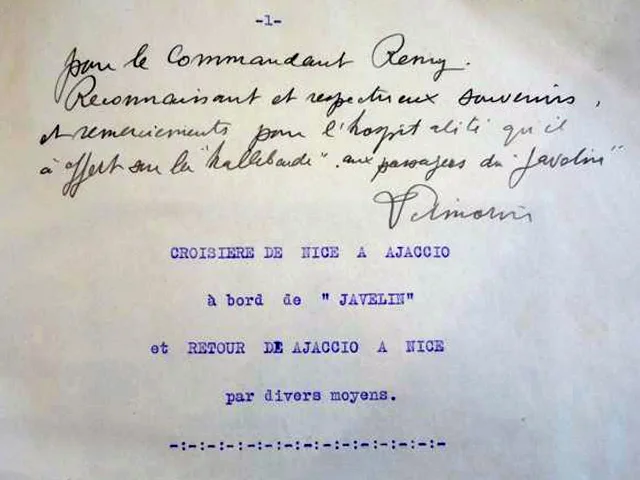 -1-
pour le Commandant Remy.
Reconnaissant et respectueux souvenirs,
et remerciements pour l'hospitalité qu'il
a offert sur la "hallebarde" aux passagers du "Javelin"
CROISIERE DE NICE A AJACCIO
à bord de " JAVELIN"
et RETOUR DE AJACCIO A NICE
par divers moyens.
-:-:-:-:-:-:-:-:-:-:-:-:-:-:-:-:-